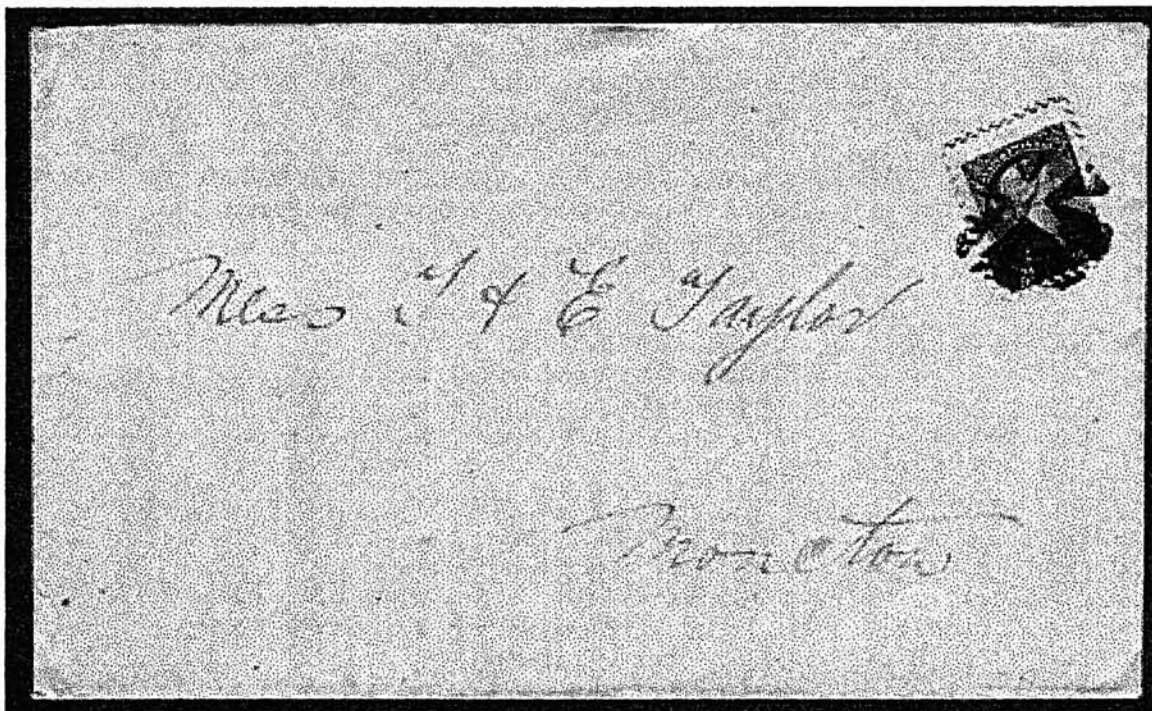 Mess T & E Taylor
Moncton